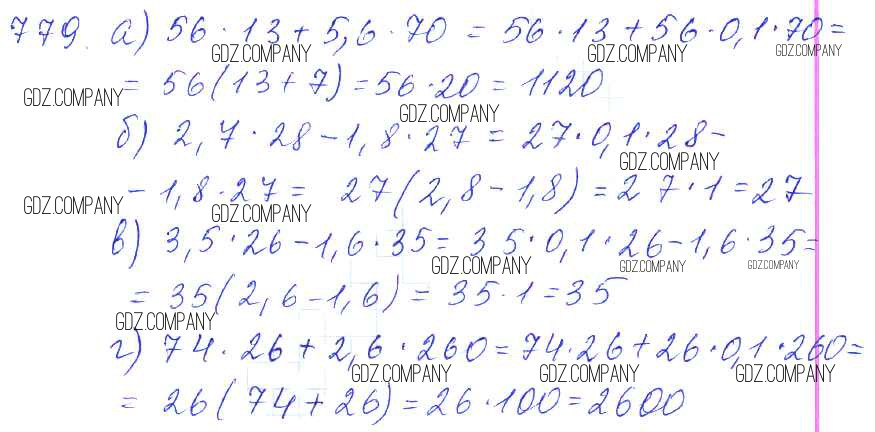 779. а) 56 · 13 + 5,6 · 70 = 56 · 13 + 56 · 0,1 · 70 =
GDZ.COMPANY GDZ.COMPANY GDZ.COMPANY
= 56(13 + 7) = 56 · 20 = 1120
GDZ.COMPANY GDZ.COMPANY
б) 2,7 · 28 - 1,8 · 27 = 27 · 0,1 · 28 -
GDZ.COMPANY
- 1,8 · 27 = 27(2,8 - 1,8) = 27 · 1 = 27
GDZ.COMPANY GDZ.COMPANY
в) 3,5 · 26 - 1,6 · 35 = 35 · 0,1 · 26 - 1,6 · 35 =
GDZ.COMPANY GDZ.COMPANY GDZ.COMPANY
= 35(2,6 - 1,6) = 35 · 1 = 35
GDZ.COMPANY
г) 74 · 26 + 2,6 · 260 = 74 · 26 + 26 · 0,1 · 260 =
GDZ.COMPANY GDZ.COMPANY GDZ.COMPANY
= 26(74 + 26) = 26 · 100 = 2600